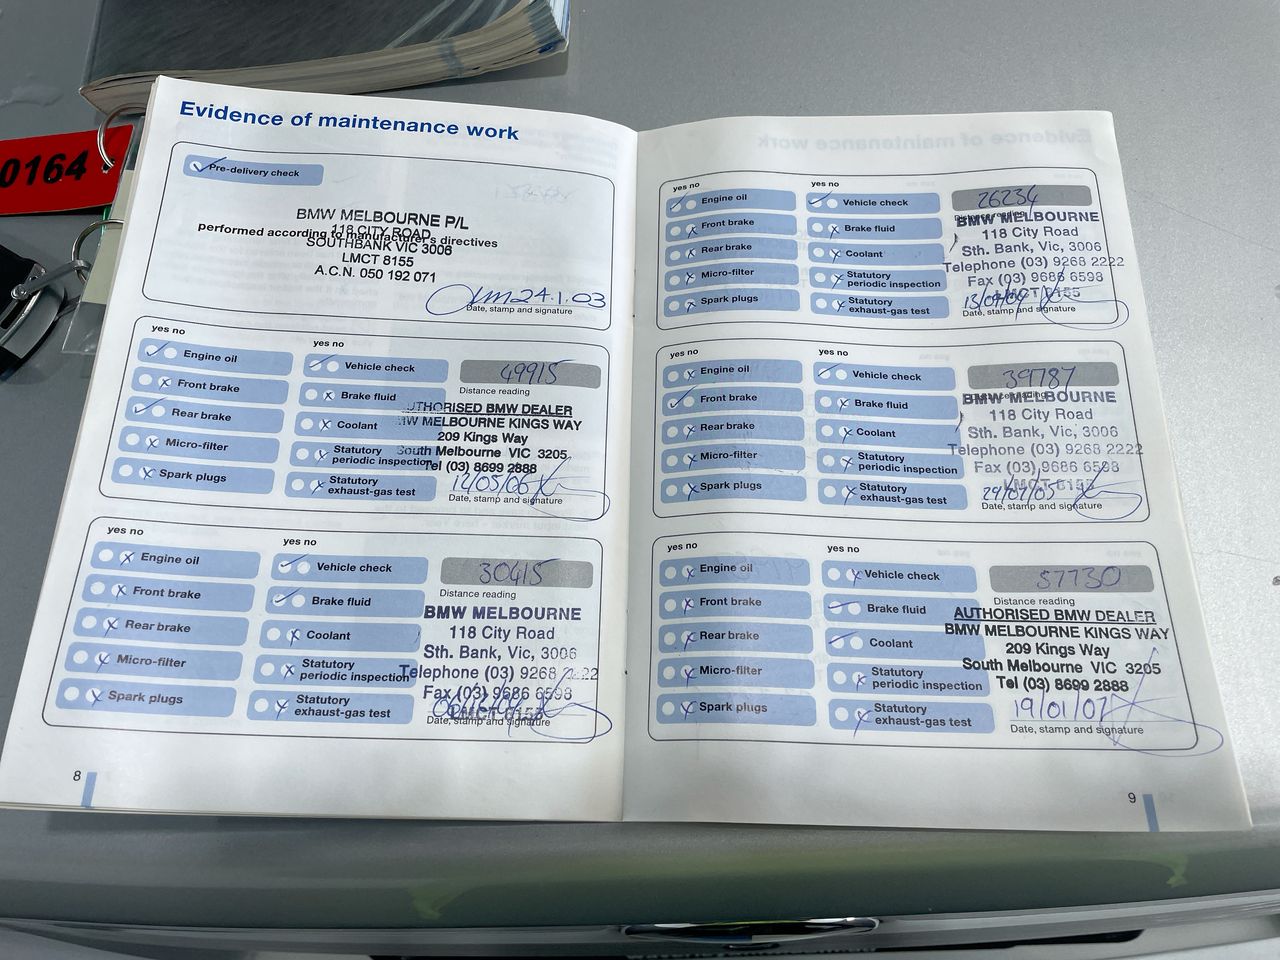 0164
Evidence of maintenance work
Pre-delivery check
BMW MELBOURNE P/L
118 CITY ROAD
performed according to manufacturer's directives
SOUTHBANK VIC 3006
LMCT 8155
A.C.N. 050 192 071
24.1.03
Date, stamp and signature
yes no
yes no
Engine oil
Vehicle check
49915
Distance reading
Front brake
Brake fluid
AUTHORISED BMW DEALER
Rear brake
Coolant
BMW MELBOURNE KINGS WAY
209 Kings Way
Micro-filter
Statutory
periodic inspection
South Melbourne VIC 3205
Tel (03) 8699 2888
Spark plugs
Statutory
exhaust-gas test
12/05/06
Date, stamp and signature
yes no
yes no
Engine oil
Vehicle check
30415
Distance reading
Front brake
Brake fluid
BMW MELBOURNE
118 City Road
Rear brake
Coolant
Sth. Bank, Vic, 3006
Micro-filter
Statutory
periodic inspection
Telephone (03) 9268 2222
Fax (03) 9686 6598
Spark plugs
Statutory
exhaust-gas test
LMCT 8155
Date, stamp and signature
8
yes no
yes no
Engine oil
Vehicle check
26234
Distance reading
Front brake
Brake fluid
BMW MELBOURNE
118 City Road
Rear brake
Coolant
Sth. Bank, Vic, 3006
Telephone (03) 9268 2222
Micro-filter
Statutory
periodic inspection
Fax (03) 9686 6598
LMCT 8155
Spark plugs
Statutory
exhaust-gas test
Date, stamp and signature
yes no
yes no
Engine oil
Vehicle check
39787
Distance reading
Front brake
Brake fluid
BMW MELBOURNE
118 City Road
Rear brake
Coolant
Sth. Bank, Vic, 3006
Telephone (03) 9268 2222
Micro-filter
Statutory
periodic inspection
Fax (03) 9686 6598
LMCT 8155
Spark plugs
Statutory
exhaust-gas test
29/07/05
Date, stamp and signature
yes no
yes no
Engine oil
Vehicle check
57730
Distance reading
Front brake
Brake fluid
AUTHORISED BMW DEALER
BMW MELBOURNE KINGS WAY
Rear brake
Coolant
209 Kings Way
South Melbourne VIC 3205
Micro-filter
Statutory
periodic inspection
Tel (03) 8699 2888
Spark plugs
Statutory
exhaust-gas test
19/01/07
Date, stamp and signature
9